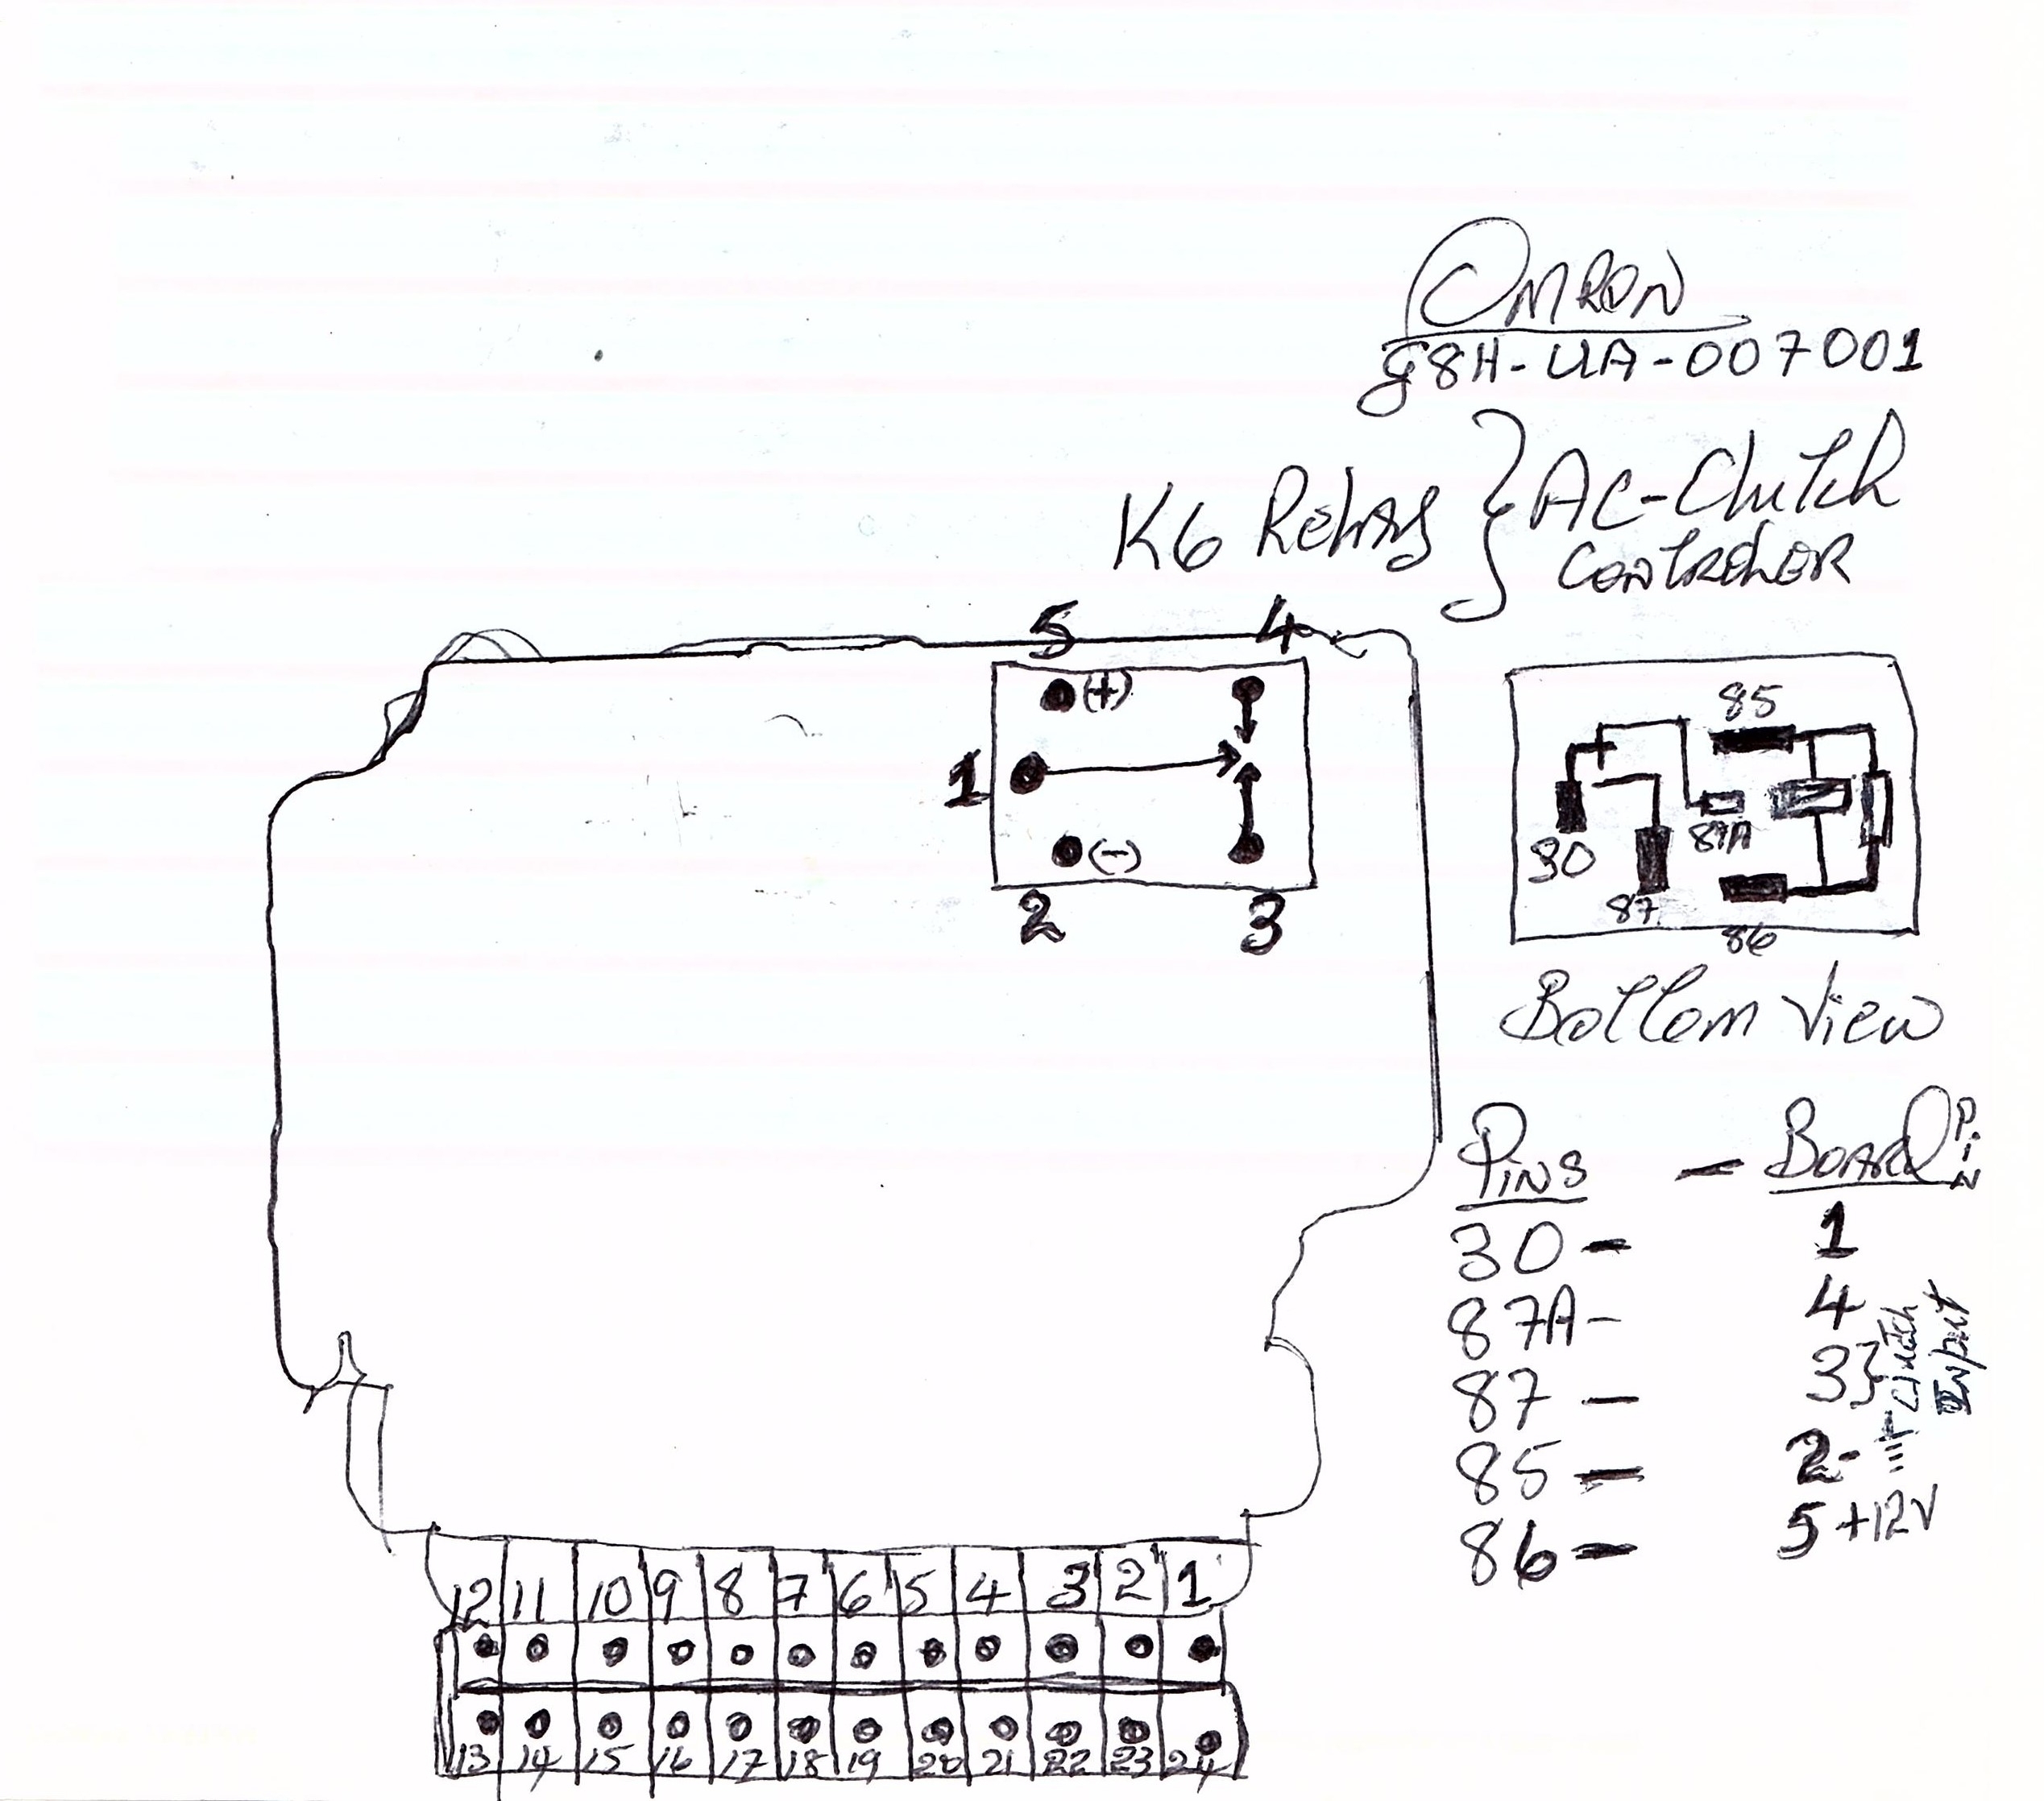 OMRON
G8H-UA-007001
K6 Relay } AC-Clutch
Controller
5 4
(+)
1
(-)
2 3
85
30
87A
87
86
Bottom View
Pins - Board Pin
30 - 1
87A - 4
87 - 3} Clutch Input
85 - 2-
86 - 5 +12V
12 11 10 9 8 7 6 5 4 3 2 1
13 14 15 16 17 18 19 20 21 22 23 24